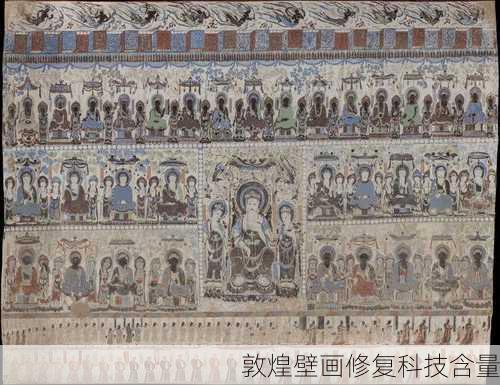 敦煌壁画修复科技含量